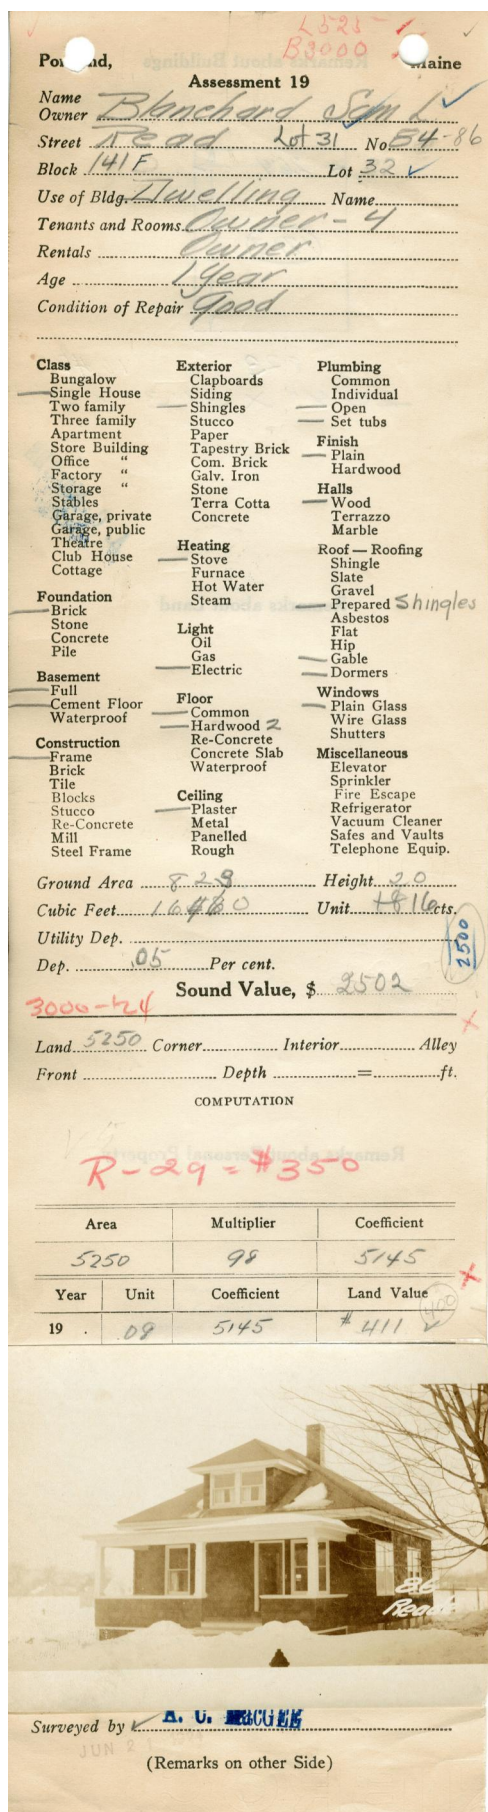 L525-
B3000
Po nd, Maine
Assessment 19
Name
Owner Blanchard Sam L
Street Read Lot 31 No 84-86
Block 141F Lot 32
Use of Bldg. Dwelling Name
Tenants and Rooms Owner - 4
Rentals Owner
Age 1 Year
Condition of Repair Good
Class
Bungalow
Single House
Two family
Three family
Apartment
Store Building
Office "
Factory "
Storage "
Stables
Garage, private
Garage, public
Theatre
Club House
Cottage
Foundation
Brick
Stone
Concrete
Pile
Basement
Full
Cement Floor
Waterproof
Construction
Frame
Brick
Tile
Blocks
Stucco
Re-Concrete
Mill
Steel Frame
Exterior
Clapboards
Siding
Shingles
Stucco
Paper
Tapestry Brick
Com. Brick
Galv. Iron
Stone
Terra Cotta
Concrete
Heating
Stove
Furnace
Hot Water
Steam
Light
Oil
Gas
Electric
Floor
Common
Hardwood 2
Re-Concrete
Concrete Slab
Waterproof
Ceiling
Plaster
Metal
Panelled
Rough
Plumbing
Common
Individual
Open
Set tubs
Finish
Plain
Hardwood
Halls
Wood
Terrazzo
Marble
Roof — Roofing
Shingle
Slate
Gravel
Prepared Shingles
Asbestos
Flat
Hip
Gable
Dormers
Windows
Plain Glass
Wire Glass
Shutters
Miscellaneous
Elevator
Sprinkler
Fire Escape
Refrigerator
Vacuum Cleaner
Safes and Vaults
Telephone Equip.
Ground Area 823 Height 20
Cubic Feet 16460 Unit 16 cts.
Utility Dep.
2500
Dep. .05 Per cent.
Sound Value, $ 2502
3000-
Land 5250 Corner Interior Alley
Front Depth = ft.
COMPUTATION
R-29 = $350
Area Multiplier Coefficient
5250 98 5145
Year Unit Coefficient Land Value 400
19 .08 5145 $ 411
86
Read
Surveyed by A. C. MCGEE
JUN 2
(Remarks on other Side)